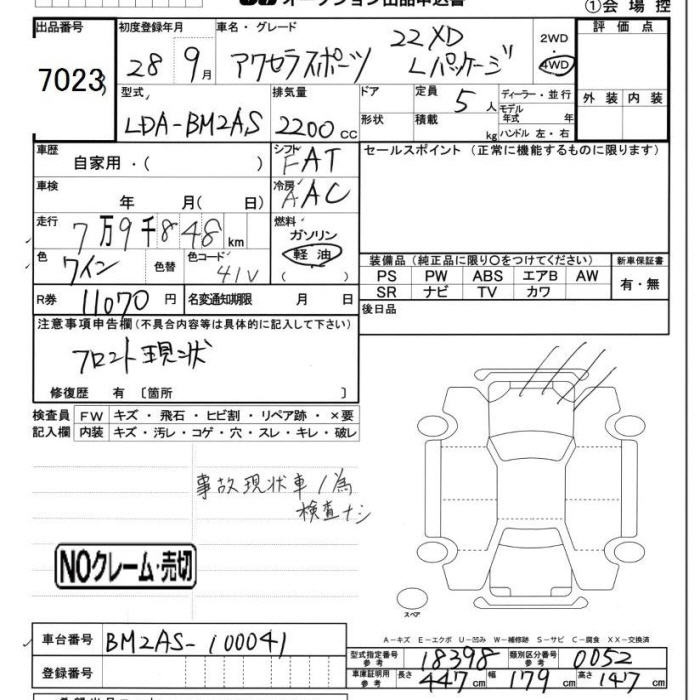 オークション出品申込書
①会場控
出品番号
7023
初度登録年月
28 9月
車名・グレード
アクセラスポーツ 22XD Lパッケージ
2WD
4WD
評価点
外装 内装
型式
LDA-BM2AS
排気量
2200cc
ドア
形状
定員 5人
積載 kg
ディーラー・並行
モデル年式 年
ハンドル 左・右
車歴
自家用・( )
シフト FAT
セールスポイント(正常に機能するものに限ります)
車検 年 月( 日)
冷房 AAC
走行 7万9千848km
燃料
ガソリン
軽油
( )
色 ワイン 色替 色コード 41V
R券 11070円 名変通知期限 月 日
装備品(純正品に限り〇をつけてください)
PS PW ABS エアB AW
SR ナビ TV カワ
新車保証書
有・無
後日品
注意事項申告欄(不具合内容等は具体的に記入して下さい)
フロント現状
修復歴 有 〔箇所 〕
検査員記入欄
FW キズ・飛石・ヒビ割・リペア跡・×要
内装 キズ・汚レ・コゲ・穴・スレ・キレ・破レ
事故現状車ノ為
検査ナシ
NOクレーム・売切
スペア
車台番号 BM2AS-100041
登録番号
A-キズ E-エクボ U-凹み W-補修跡 S-サビ C-腐食 XX-交換済
型式指定番号参考 18398 類別区分番号参考 0052
車庫証明用参考 長さ 447cm 幅 179cm 高さ 147cm